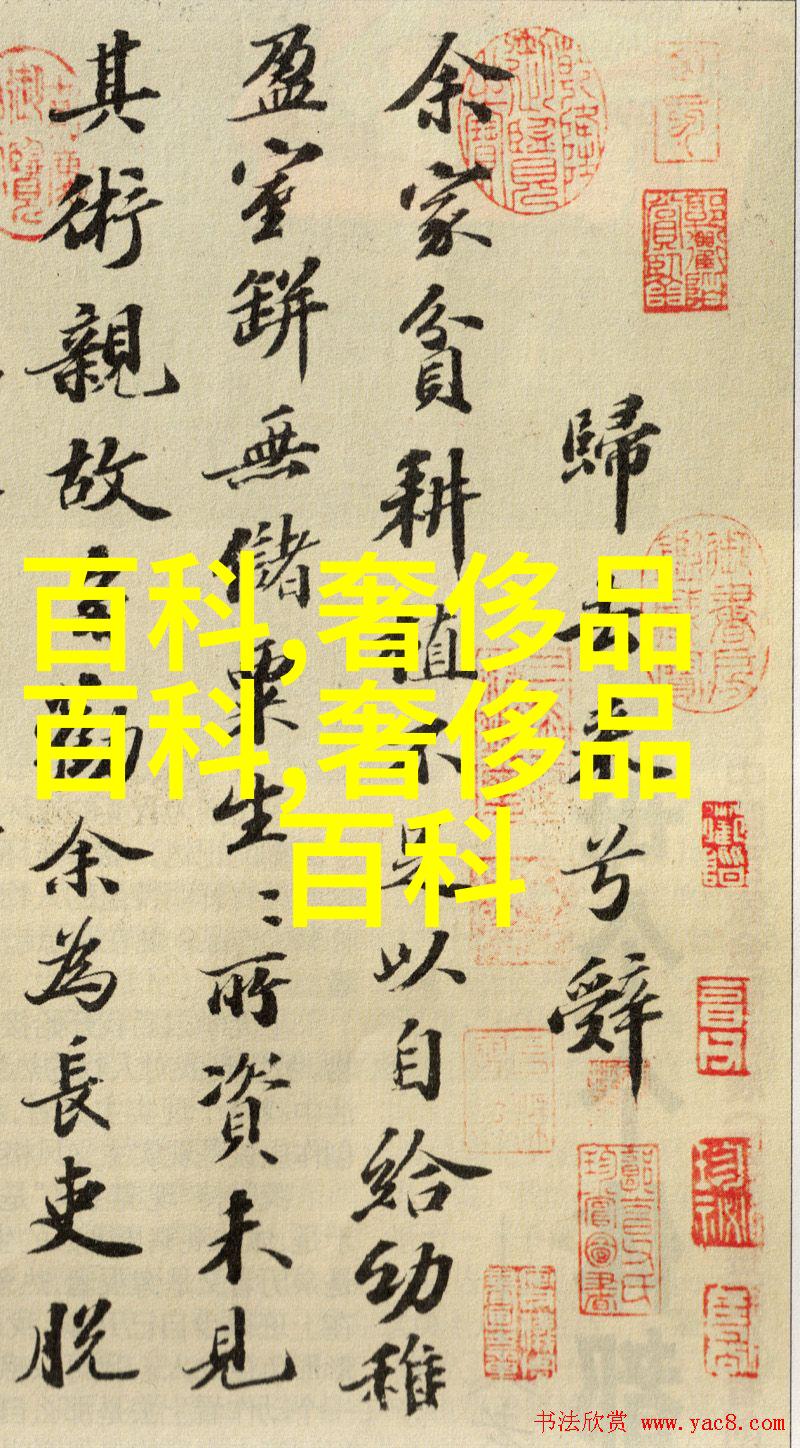 歸去来兮辭
余家貧耕植不足以自給幼稚
盈室缾無儲粟生〻所資未見
其術親故多勸余為長吏脱
百科,奢侈品
百科,奢侈品
百科
书法欣赏 www.yac8.com